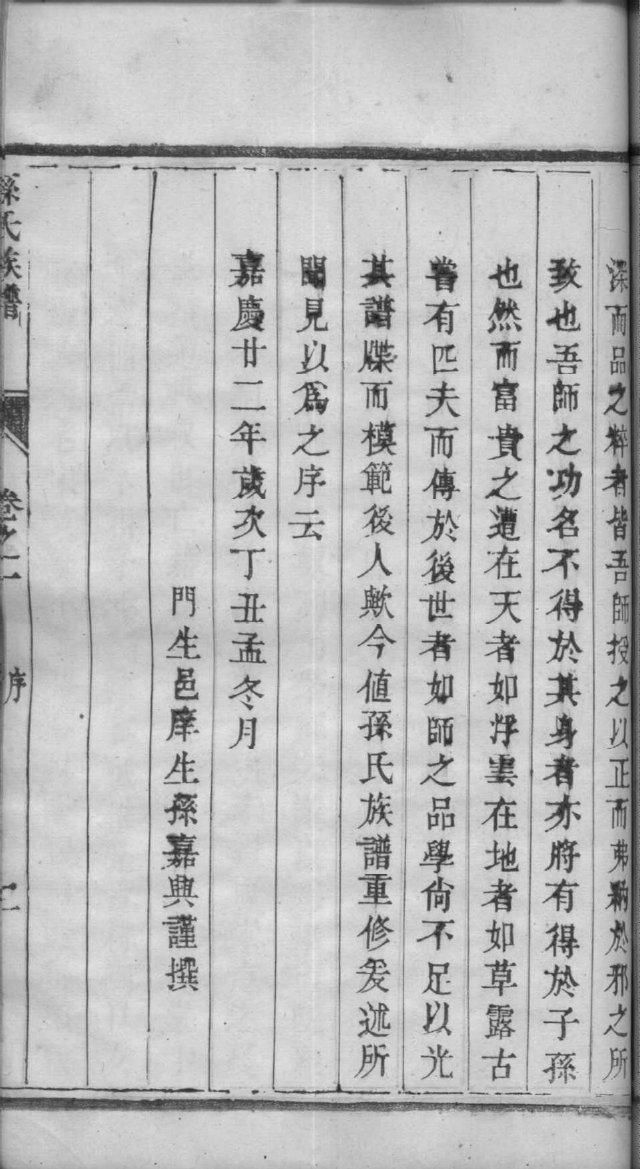 深而品之粹者皆吾師授之以正而弗納於邪之所
致也吾師之功名不得於其身者亦將有得於子孫
也然而富貴之遭在天者如浮雲在地者如草露古
嘗有匹夫而傳於後世者如師之品學尙不足以光
其譜牒而模範後人歟今値孫氏族譜重修爰述所
聞見以爲之序云
嘉慶廿二年歲次丁丑孟冬月
門生邑庠生孫嘉興謹撰
孫氏族譜
卷之一
序